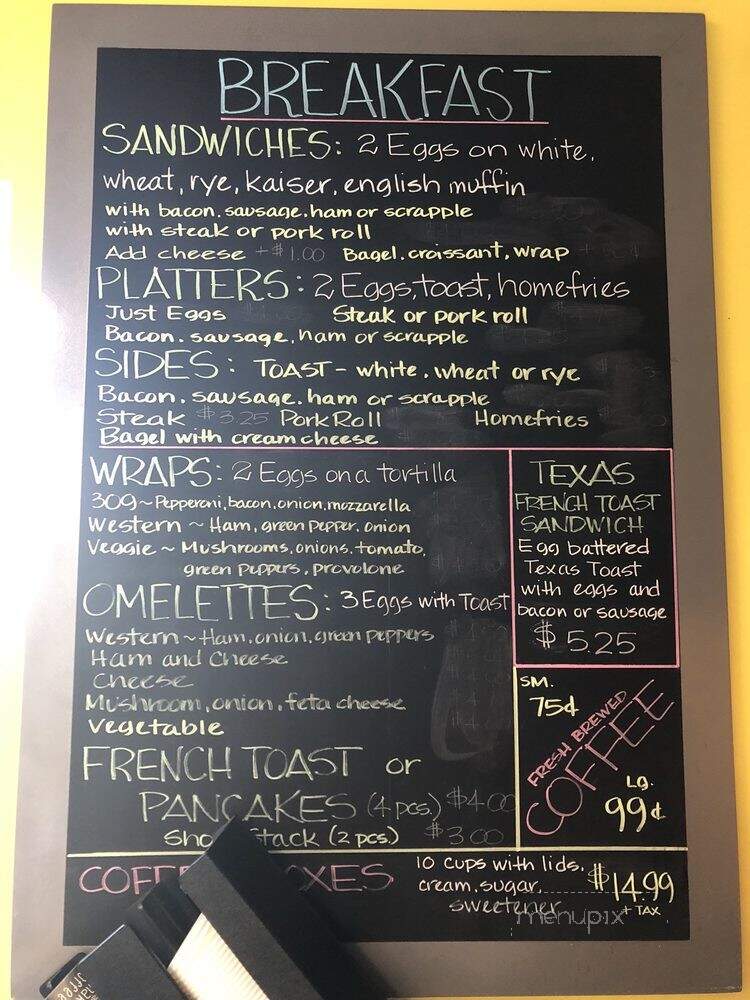 BREAKFAST
SANDWICHES: 2 Eggs on white,
wheat, rye, kaiser, english muffin
with bacon, sausage, ham or scrapple
with steak or pork roll
Add cheese +$1.00 Bagel, croissant, wrap
PLATTERS: 2 Eggs, toast, homefries
Just Eggs Steak or pork roll
Bacon, sausage, ham or scrapple
SIDES: TOAST - white, wheat or rye
Bacon, sausage, ham or scrapple
Steak $3.25 Pork Roll Homefries
Bagel with cream cheese
WRAPS: 2 Eggs on a tortilla
309 ~ Pepperoni, bacon, onion, mozzarella
Western ~ Ham, green pepper, onion
Veggie ~ Mushrooms, onions, tomato,
green peppers, provolone
OMELETTES: 3 Eggs with Toast
Western ~ Ham, onion, green peppers
Ham and Cheese
Cheese
Mushroom, onion, feta cheese
Vegetable
FRENCH TOAST or
PANCAKES (4 pcs.) $4.00
Stack (2 pcs.) $3.00
TEXAS
FRENCH TOAST
SANDWICH
Egg battered
Texas Toast
with eggs and
bacon or sausage
$5.25
SM.
75¢
FRESH BREWED
COFFEE
LG.
99¢
10 cups with lids,
cream, sugar,
sweetener
$14.99
+ TAX
menupix